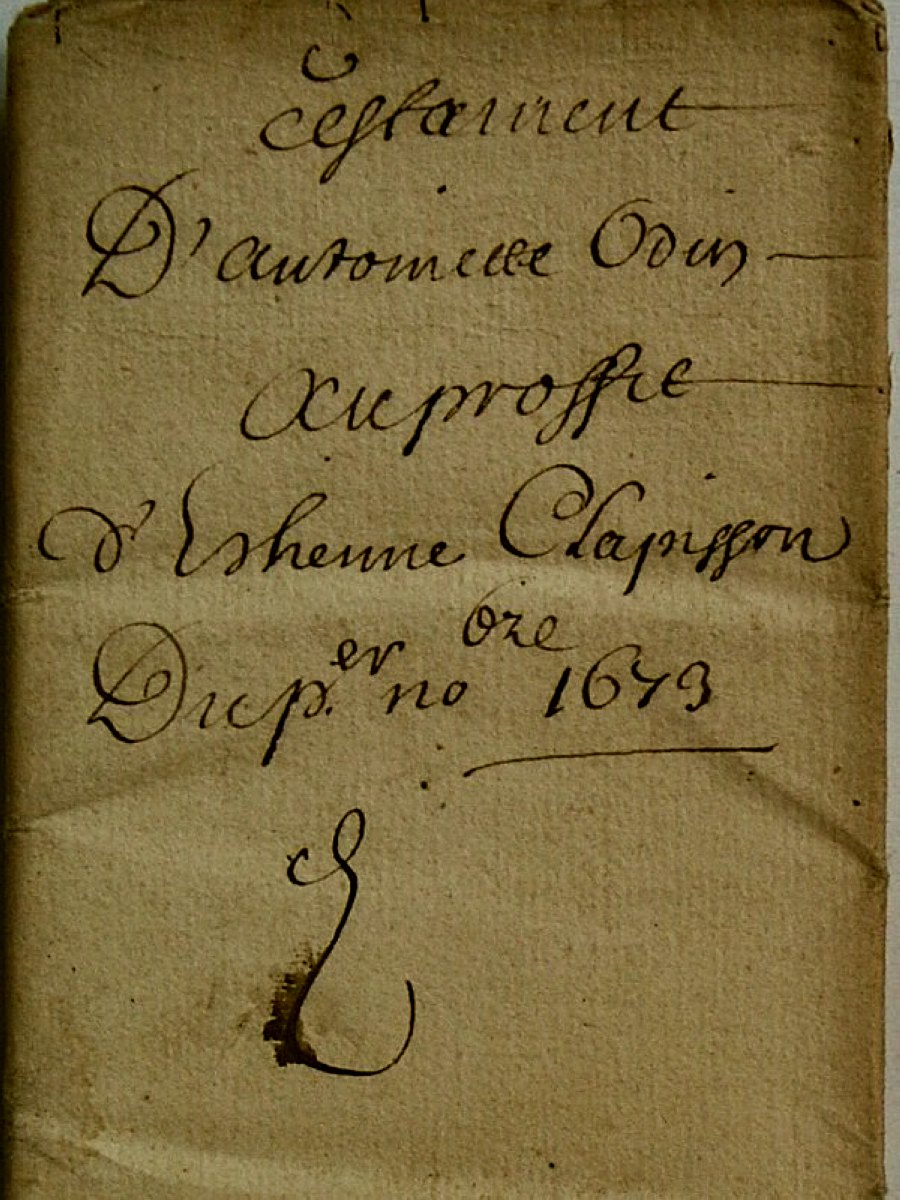 Testament
D'antoinette Odin
Au proffit
d'Esthienne Clapisson
Du p.er no bre 1673